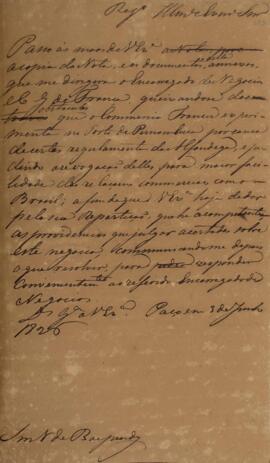 Illmo e Exmo Snr
Passo ás mãos de V. Exa
a copia da Nota, e os documentos
que me dirigio o Encarregado de Negocios
de França, queixando-se
que o Commercio Francez experi-
menta no Porto de Pernambuco por causa
de certos regulamentos da Alfandega, e pe-
dindo a revogação delles para maior faci-
lidade das relacoens commerciaes com o
Brasil; a fim de que V. Exa haja de dar
pela sua Repartição, que he a competente
as providencias que julgar acertadas sobre
este negocio, communicando-me depois
o que resolver, para responder
convenientemente ao referido Encarregado de
Negocios
Ds Gde a V. Exa Paço em 3 de Junho
1826